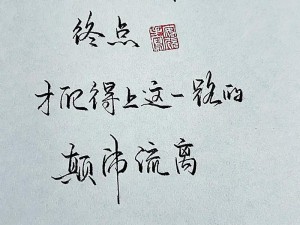 终点
才配得上这一路的
颠沛流离